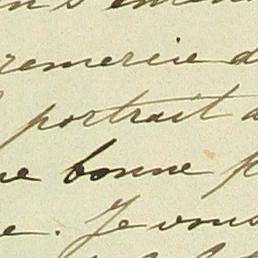 remercie d
portrait d
ne bonne p
e. Je vous